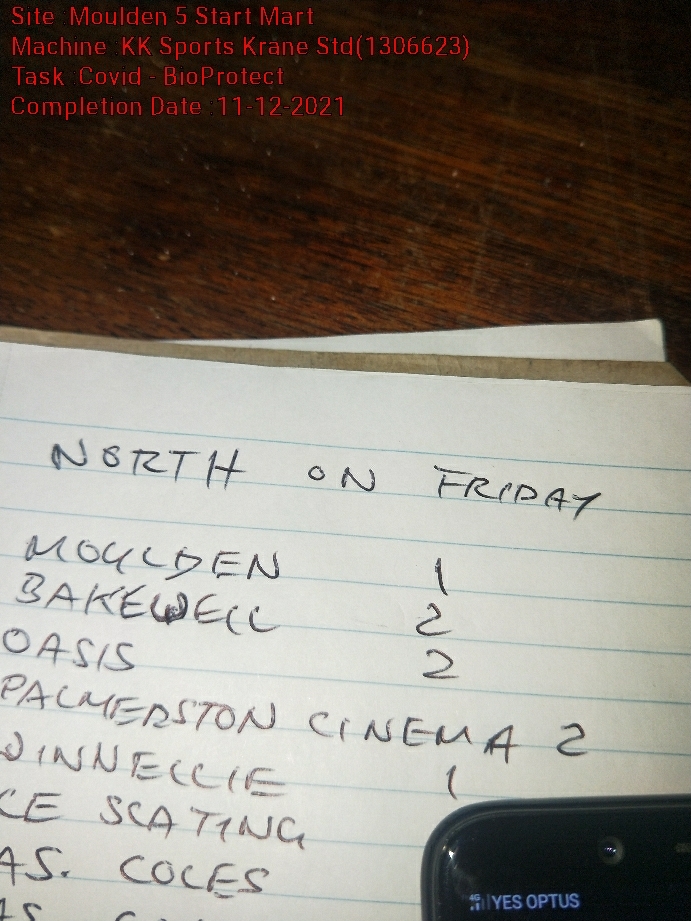 Site :Moulden 5 Start Mart
Machine :KK Sports Krane Std(1306623)
Task :Covid - BioProtect
Completion Date :11-12-2021
NORTH ON FRIDAY
MOULDEN 1
BAKEWELL 2
OASIS 2
PALMERSTON CINEMA 2
WINNELLIE 1
CE SCATING
AS. COLES
4G YES OPTUS